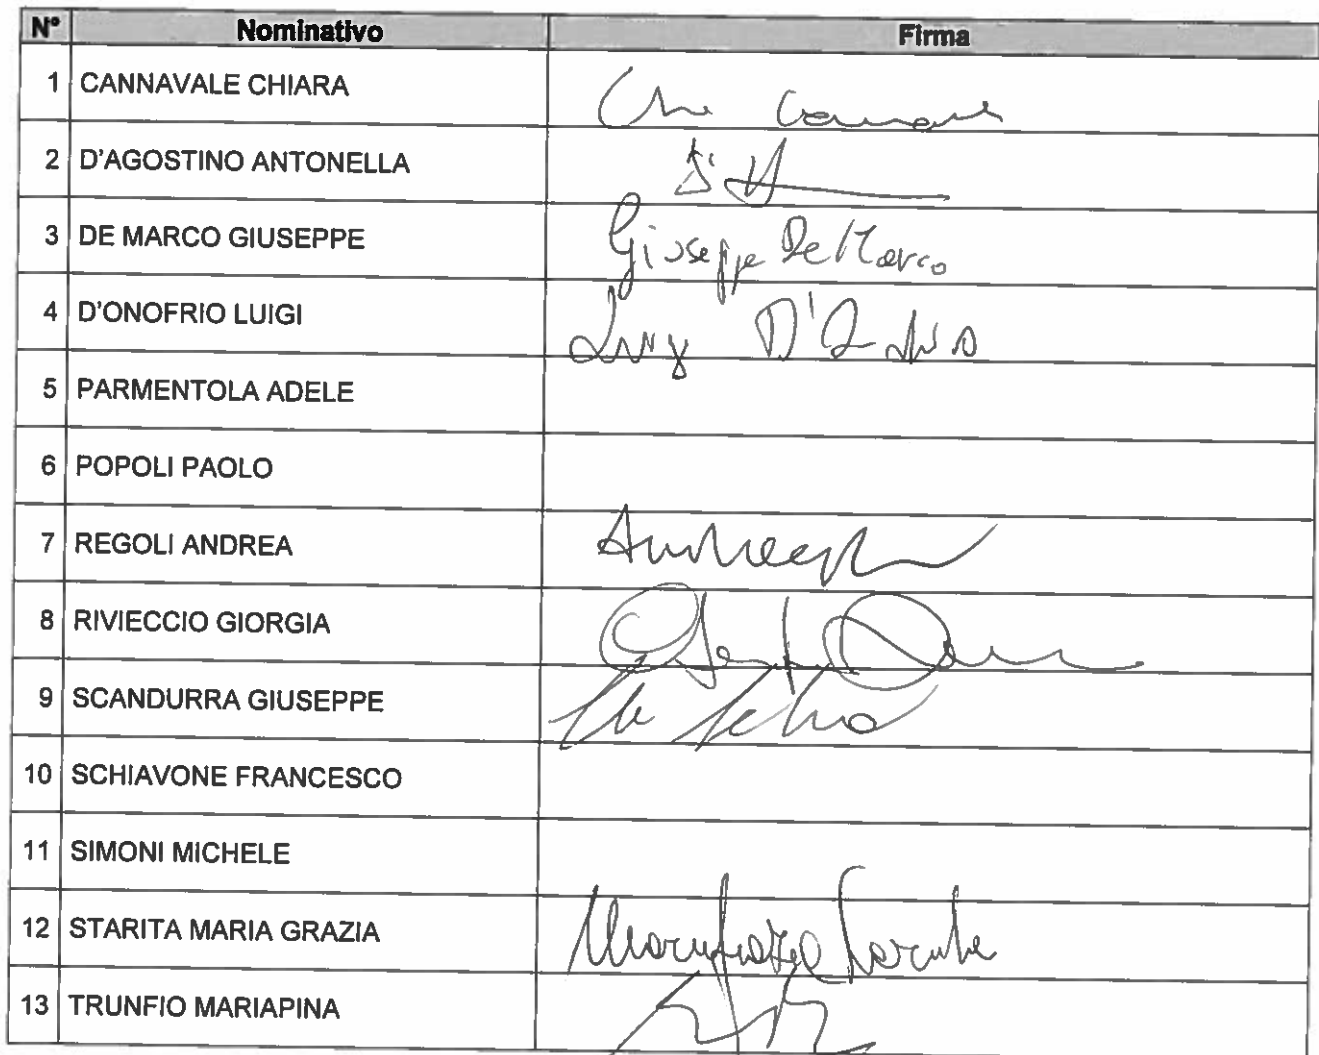 N° Nominativo Firma
1 CANNAVALE CHIARA
2 D'AGOSTINO ANTONELLA
3 DE MARCO GIUSEPPE Giuseppe De Marco
4 D'ONOFRIO LUIGI
5 PARMENTOLA ADELE
6 POPOLI PAOLO
7 REGOLI ANDREA
8 RIVIECCIO GIORGIA
9 SCANDURRA GIUSEPPE
10 SCHIAVONE FRANCESCO
11 SIMONI MICHELE
12 STARITA MARIA GRAZIA
13 TRUNFIO MARIAPINA